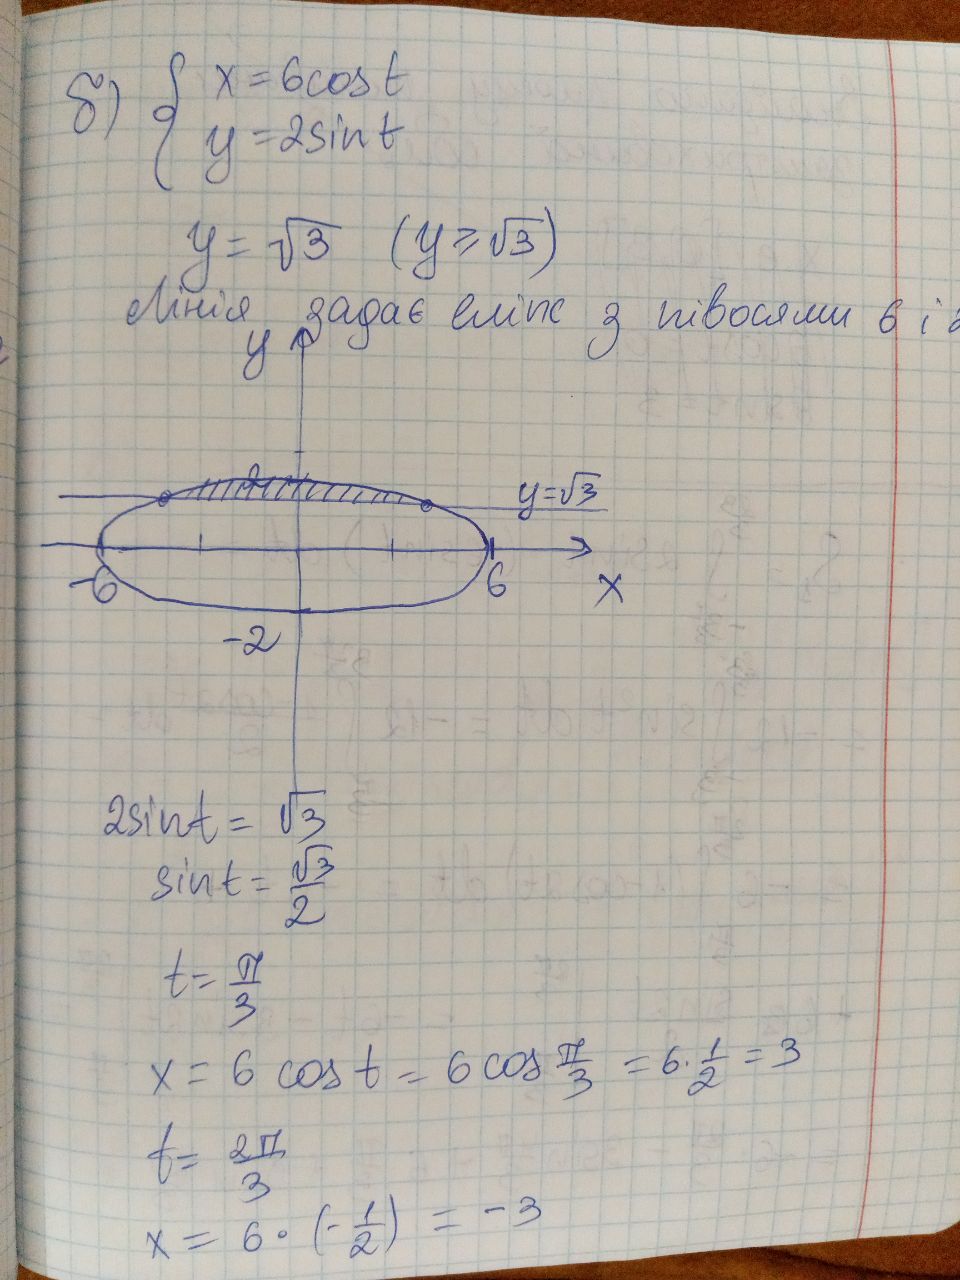 б) { x = 6cost
y = 2sint
y = √3 (y ≥ √3)
Лінія задає еліпс з півосями 6 і 2
y
2
y = √3
-6
6
x
-2
2sint = √3
sint = √3/2
t = π/3
x = 6 cos t = 6 cos π/3 = 6·1/2 = 3
t = 2π/3
x = 6·(-1/2) = -3